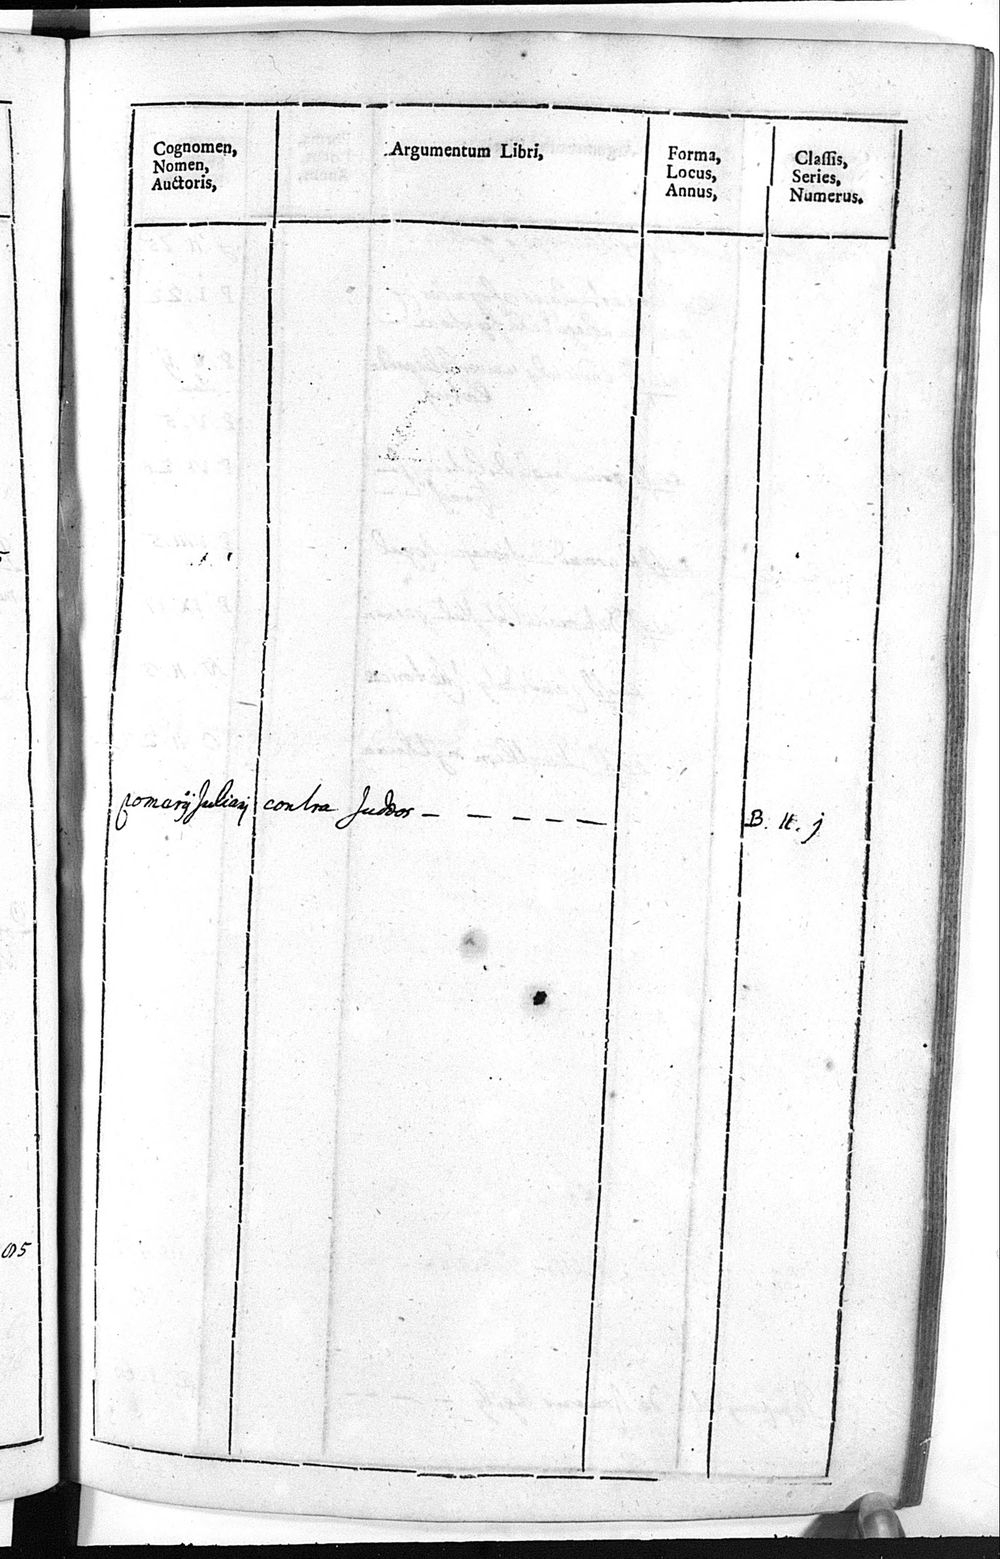 Cognomen,
Nomen,
Auctoris,
Argumentum Libri,
Forma,
Locus,
Annus,
Classis,
Series,
Numerus.
pomerij Juliani contra Judæos — — — — — — B. II. j